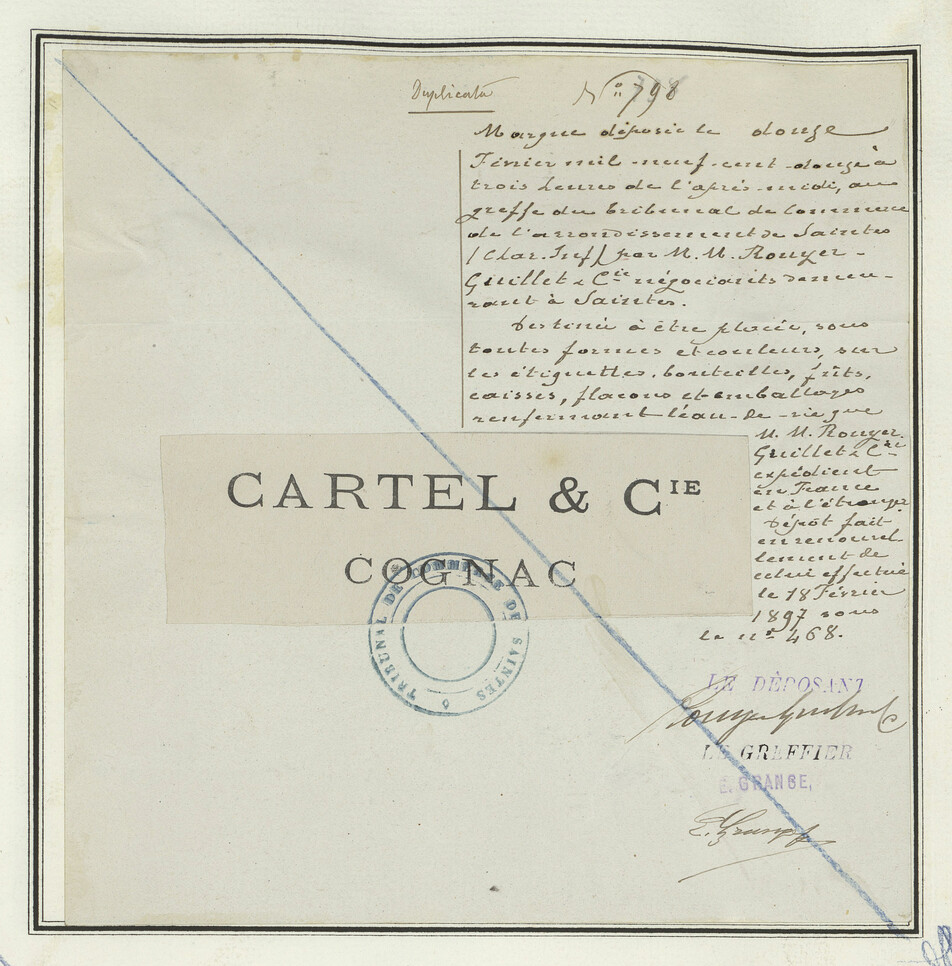 Duplicata
N° 798
Marque déposée le douze
Février mil-neuf-cent-douze à
trois heures de l'après-midi, au
greffe du tribunal de Commerce
de l'arrondissement de Saintes
(Char. Inf) par M. M. Rouyer-
Guillet & Cie négociants demeu-
rant à Saintes.
Destinée à être placée, sous
toutes formes et couleurs, sur
les étiquettes, bouteilles, fûts,
caisses, flacons et emballages
renfermant l'eau-de-vie que
M. M. Rouyer.
Guillet & Cie
expédient
en France
et à l'étranger
Dépôt fait
en renouvel
lement de
celui effectué
le 18 Février
1897 sous
le n° 468.
CARTEL & CIE
COGNAC
TRIBUNAL DE COMMERCE DE SAINTES
LE DÉPOSANT
Rouyer Guillet & C
LE GREFFIER
E. GRANGE,